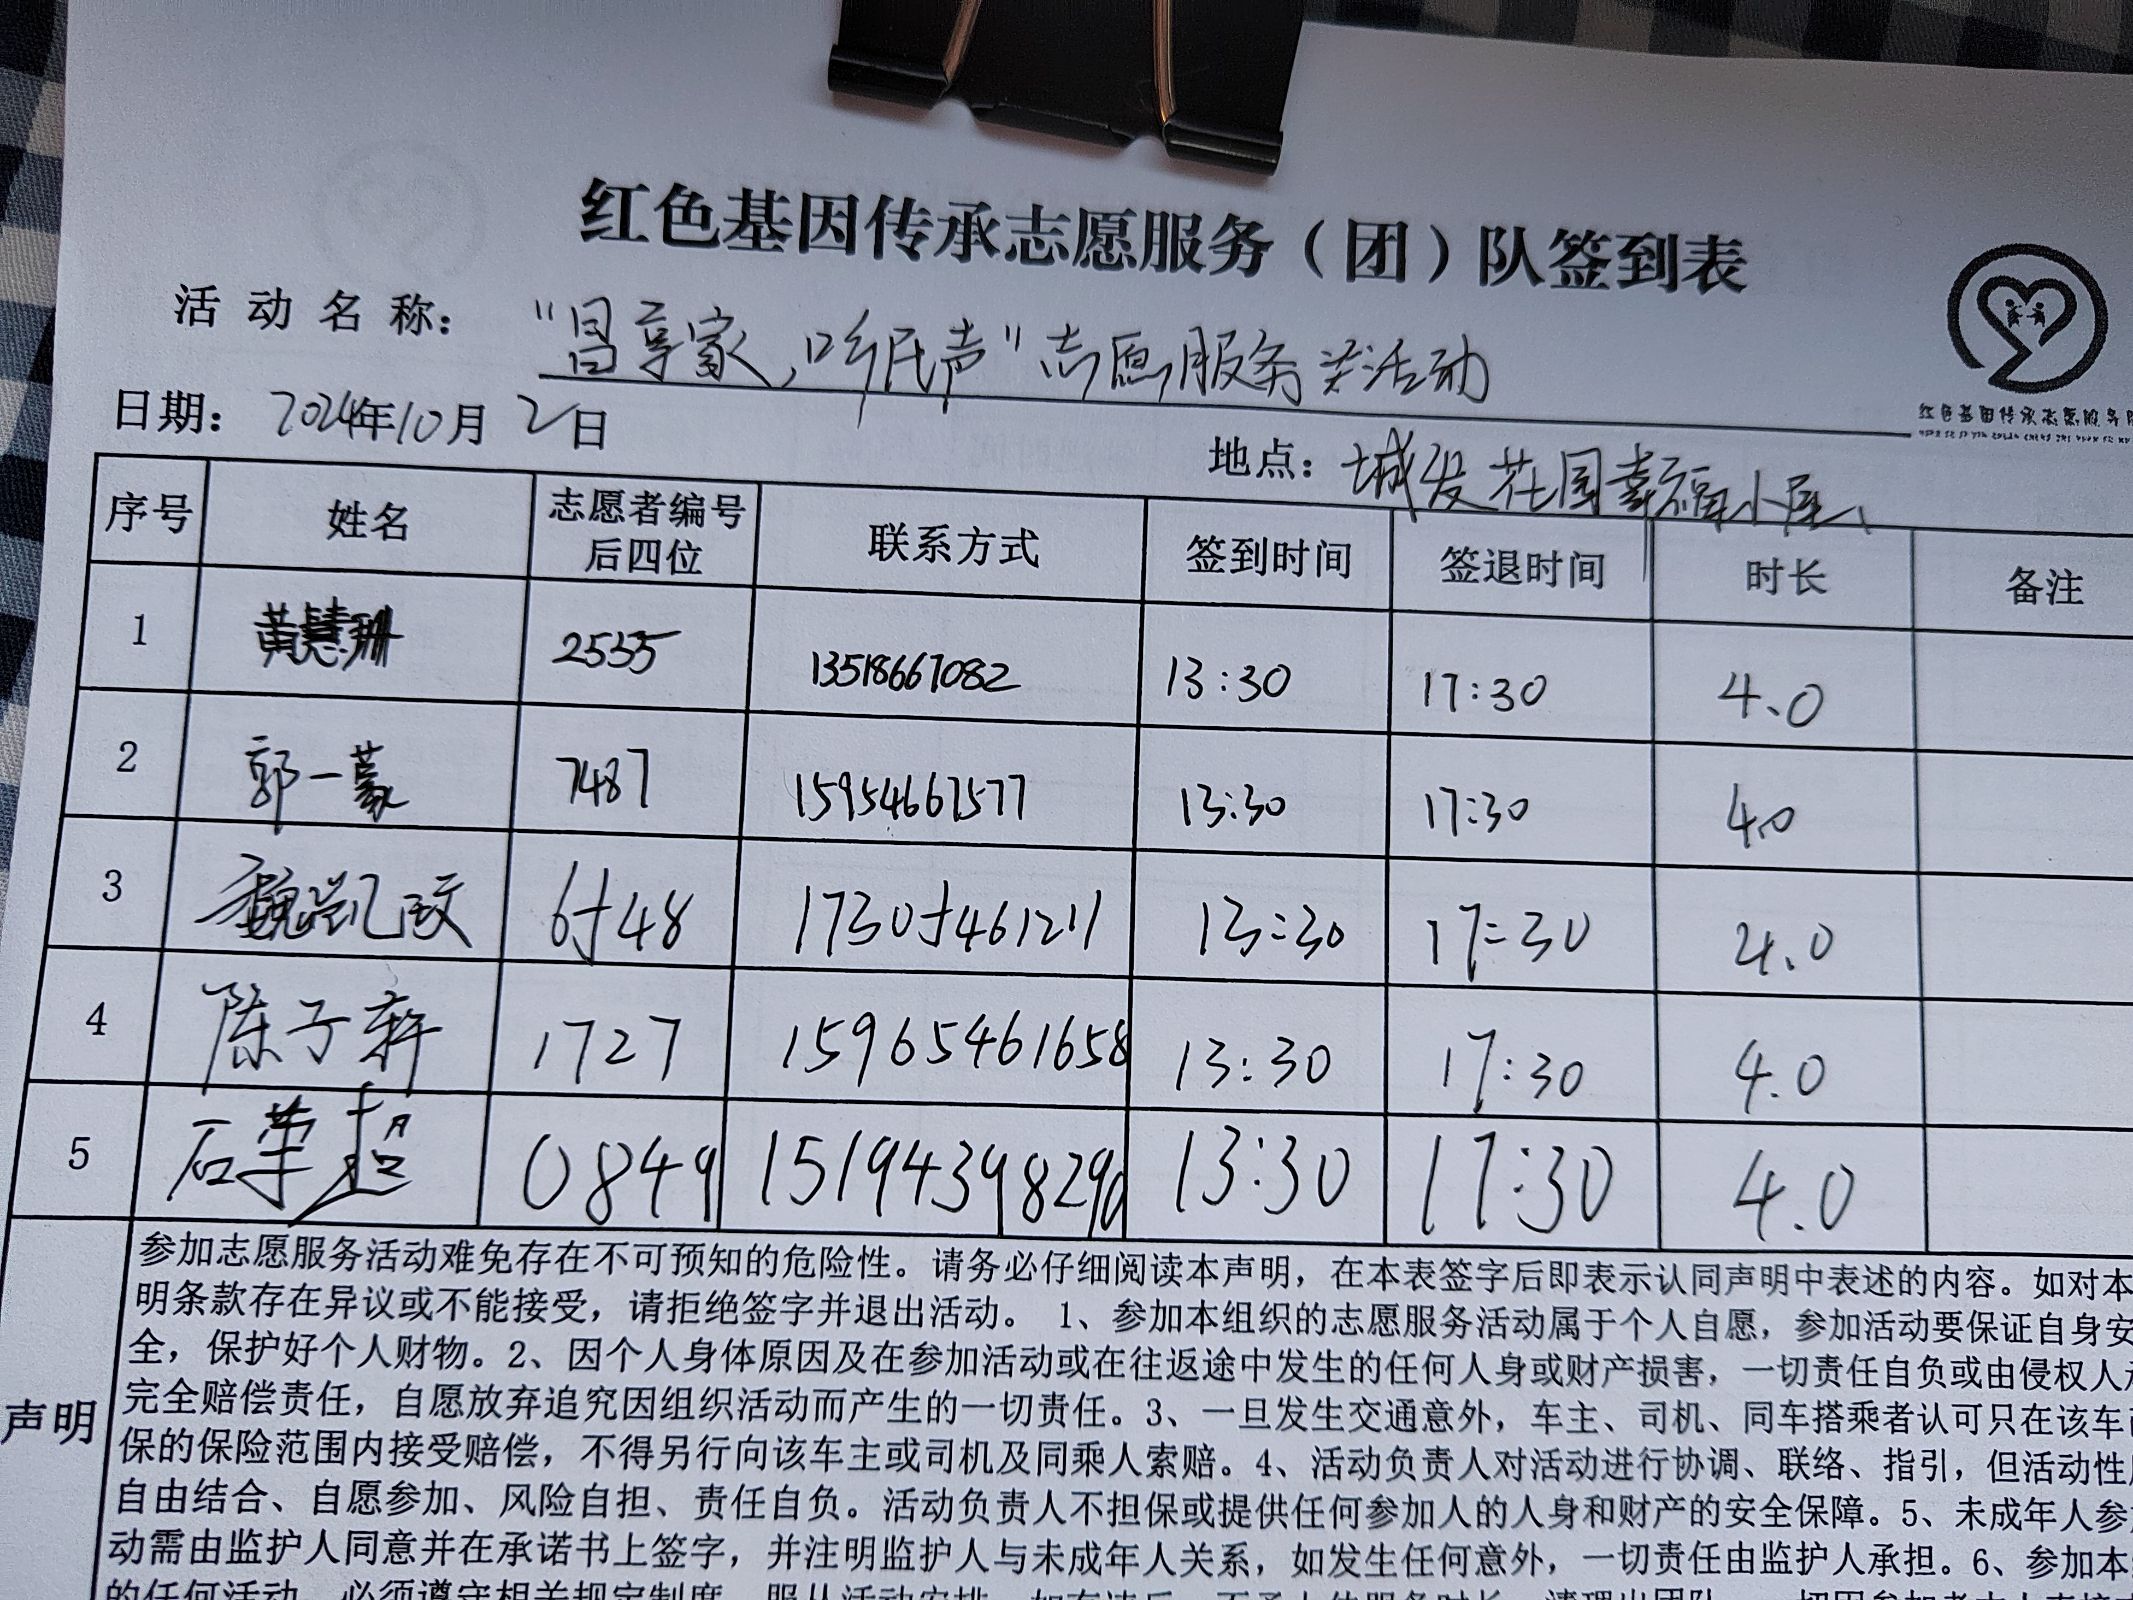 红色基因传承志愿服务（团）队签到表
活动名称： "昌享家，听民声"志愿服务类活动
红色基因传承志愿服务队
日期： 2024年10月2日
地点：城发花园幸福小屋
序号 姓名 志愿者编号后四位 联系方式 签到时间 签退时间 时长 备注
1 黄慧珊 2535 13518667082 13:30 17:30 4.0
2 郭一蒙 7487 15954667577 13:30 17:30 4.0
3 魏凯玟 6548 17305461211 13:30 17:30 4.0
4 陈子轩 1727 15965461658 13:30 17:30 4.0
5 石荣超 0849 15194398290 13:30 17:30 4.0
声明
参加志愿服务活动难免存在不可预知的危险性。请务必仔细阅读本声明，在本表签字后即表示认同声明中表述的内容。如对本
明条款存在异议或不能接受，请拒绝签字并退出活动。 1、参加本组织的志愿服务活动属于个人自愿，参加活动要保证自身安
全，保护好个人财物。2、因个人身体原因及在参加活动或在往返途中发生的任何人身或财产损害，一切责任自负或由侵权人承
完全赔偿责任，自愿放弃追究因组织活动而产生的一切责任。3、一旦发生交通意外，车主、司机、同车搭乘者认可只在该车
保的保险范围内接受赔偿，不得另行向该车主或司机及同乘人索赔。4、活动负责人对活动进行协调、联络、指引，但活动性
自由结合、自愿参加、风险自担、责任自负。活动负责人不担保或提供任何参加人的人身和财产的安全保障。5、未成年人参
动需由监护人同意并在承诺书上签字，并注明监护人与未成年人关系，如发生任何意外，一切责任由监护人承担。6、参加本
的任何活动，必须遵守相关规定制度，服从活动安排